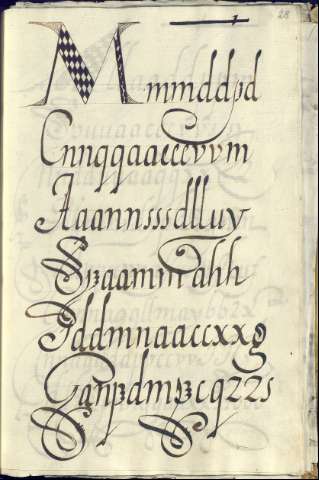 28
Mmmddpd
Cnnqqaaccevvm
Aaannsssdlluy
Spaammahh
Jddmnaaccxxg
Ganpdmpcqzzs